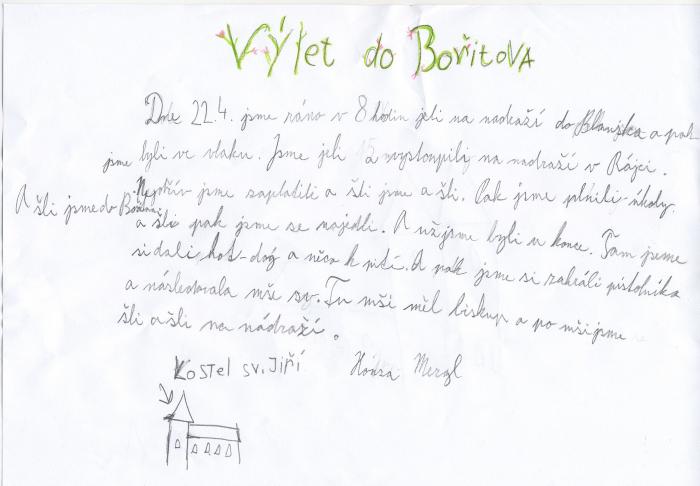 Výlet do Bořitova
Dne 22.4. jsme ráno v 8 hodin jeli na nadraží do Blanska a pak
jsme byli ve vlaku. Jsme jeli a vystoupili na nadraží v Rájci.
Nejdřív jsme zaplatili a šli jsme a šli. Pak jsme plnili úkoly.
A šli jsme do
a šli pak jsme se najedli. A už jsme byli u konce. Tam jseme
si dali hot-dog a něco k pití. A pak jsme si zahráli pistolníka
a následovala mše sv. Tu mši měl biskup a po mši jsme
šli a šli na nádraží.
Kostel sv. Jiří
Honza Mergl